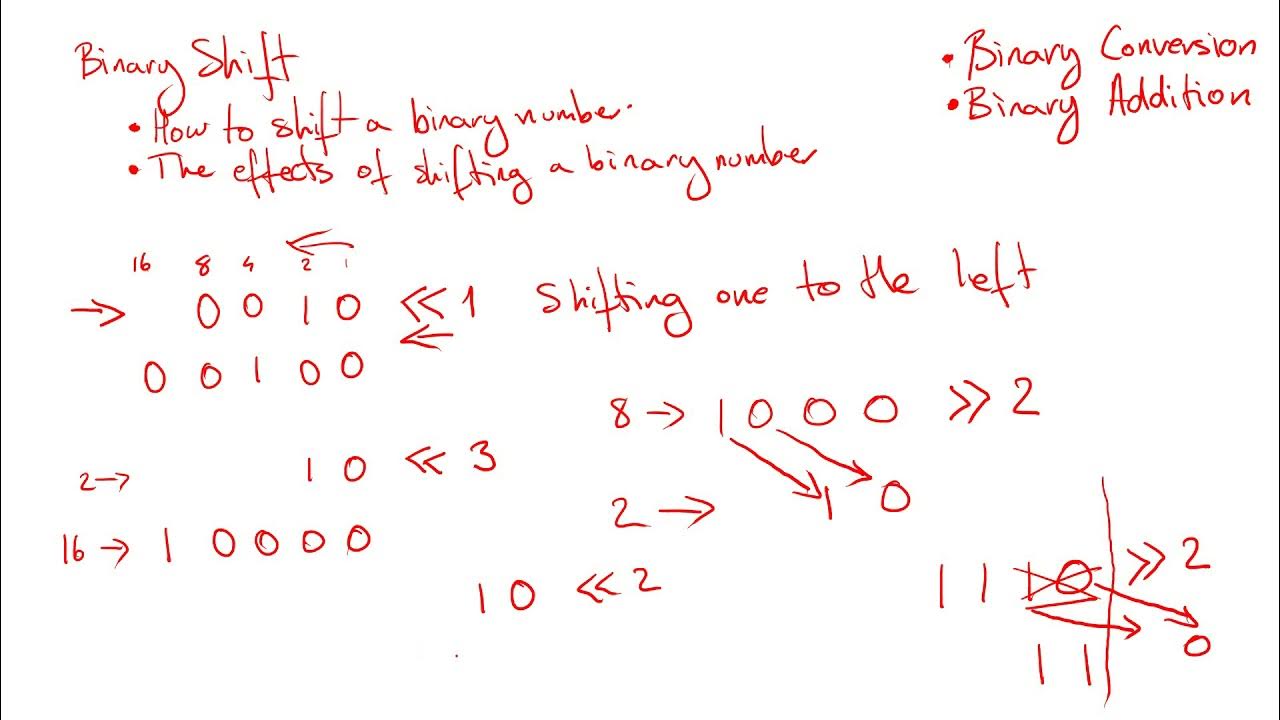 Binary Shift
• How to shift a binary number.
• The effects of shifting a binary number
• Binary Conversion
• Binary Addition
16 8 4 2 1
→ 0 0 1 0 << 1 Shifting one to the left
0 0 1 0 0
8 → 1 0 0 0 >> 2
2 → 1 0 << 3
2 → 1 0
16 → 1 0 0 0 0
1 0 << 2
1 1 1 0 >> 2
0
1 1